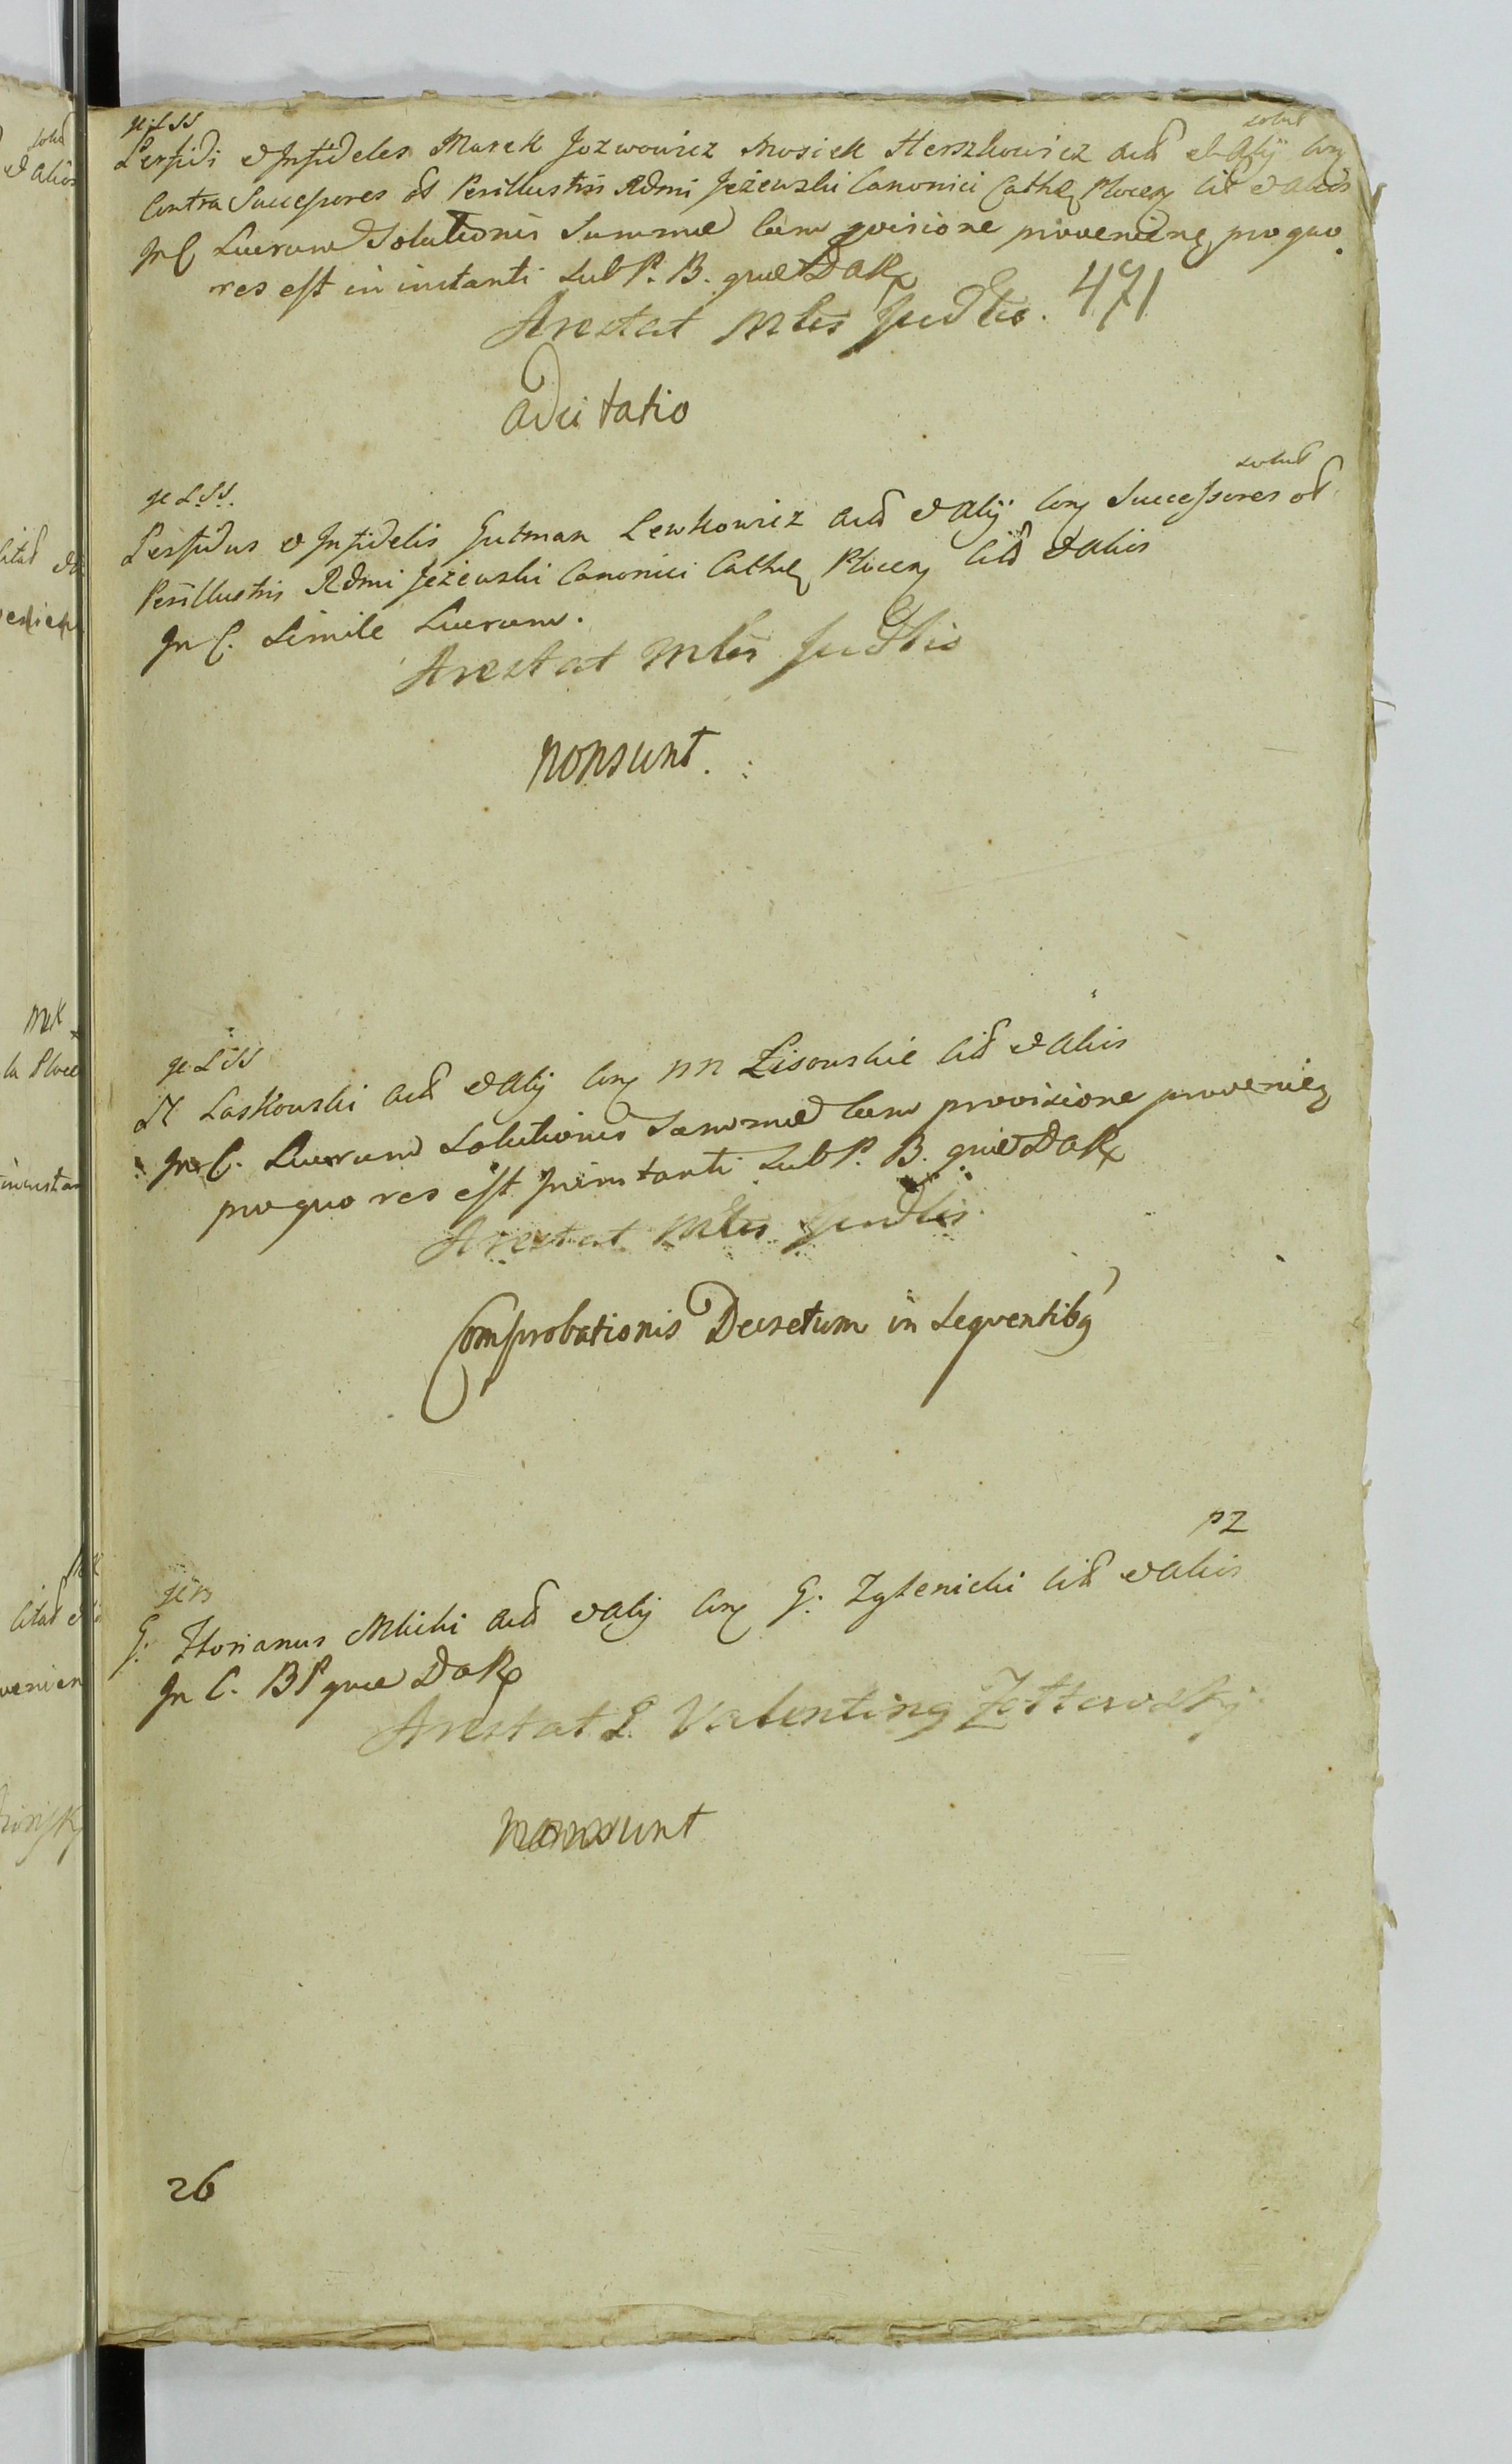 Perfidi et Infideles Marek Jozwowicz Mosiek Herszkowicz act et alij con
Contra Successores ol Perillustris Rdmi Jeżewski Canonici Cathe Plocen cit et alios
In C Lucrum Solutionis Summae cum pvisione provenien pro quo
res est in instanti sub P. B. quae DaRx
Arestat Mlis Judtio. 471
adcitatio
solut
Perfidus et Infidelis Gutman Lewkowicz act et alij con Successores ol
Perillustris Rdmi Jeżewski Canonici Cathe Plocen cit et alios
In C. Simile Lucrum.
Arestat Mlis Judtio
nonsunt.
M Laskowski act et alij con MM Lisowskie cit et alios
In C. Lucrum Solutionis Summae cum provisione provenien
pro quo res est in instanti sub P. B. quae DaRx
Arestat Mlis Judtis
Comprobationis Decretum in sequentibq
pz
G. Florianus Mlicki act et alij con G. Zglenicki cit et alios
In C. BP quae DaRx
Arestat G Valentinq
nonsunt
26